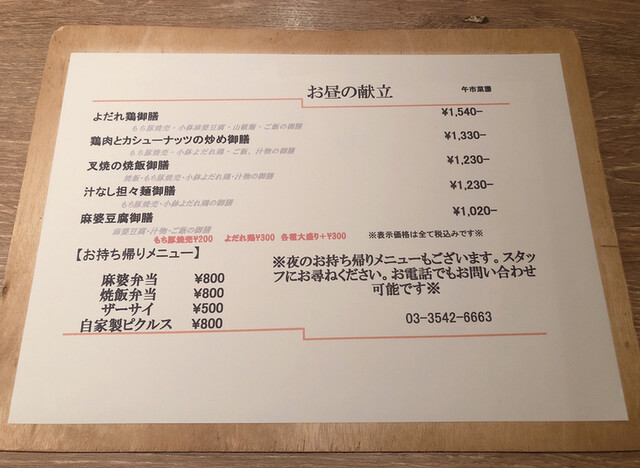 お昼の献立 午市菜譜
よだれ鶏御膳 ¥1,540−
もち豚焼売・小鉢麻婆豆腐・山椒麺・ご飯の御膳
鶏肉とカシューナッツの炒め御膳 ¥1,330−
もち豚焼売・小鉢よだれ鶏・ご飯、汁物の御膳
叉焼の焼飯御膳 ¥1,230−
焼飯・もち豚焼売・小鉢よだれ鶏・汁物の御膳
汁なし担々麺御膳 ¥1,230−
もち豚焼売・小鉢よだれ鶏の御膳
麻婆豆腐御膳 ¥1,020−
麻婆豆腐・汁物・ご飯の御膳
もち豚焼売¥200 よだれ鶏¥300 各種大盛り+¥300 ※表示価格は全て税込みです※
【お持ち帰りメニュー】
麻婆弁当 ¥800
焼飯弁当 ¥800
ザーサイ ¥500
自家製ピクルス ¥800
※夜のお持ち帰りメニューもございます。スタッ
フにお尋ねください。お電話でもお問い合わせ
可能です※
03-3542-6663